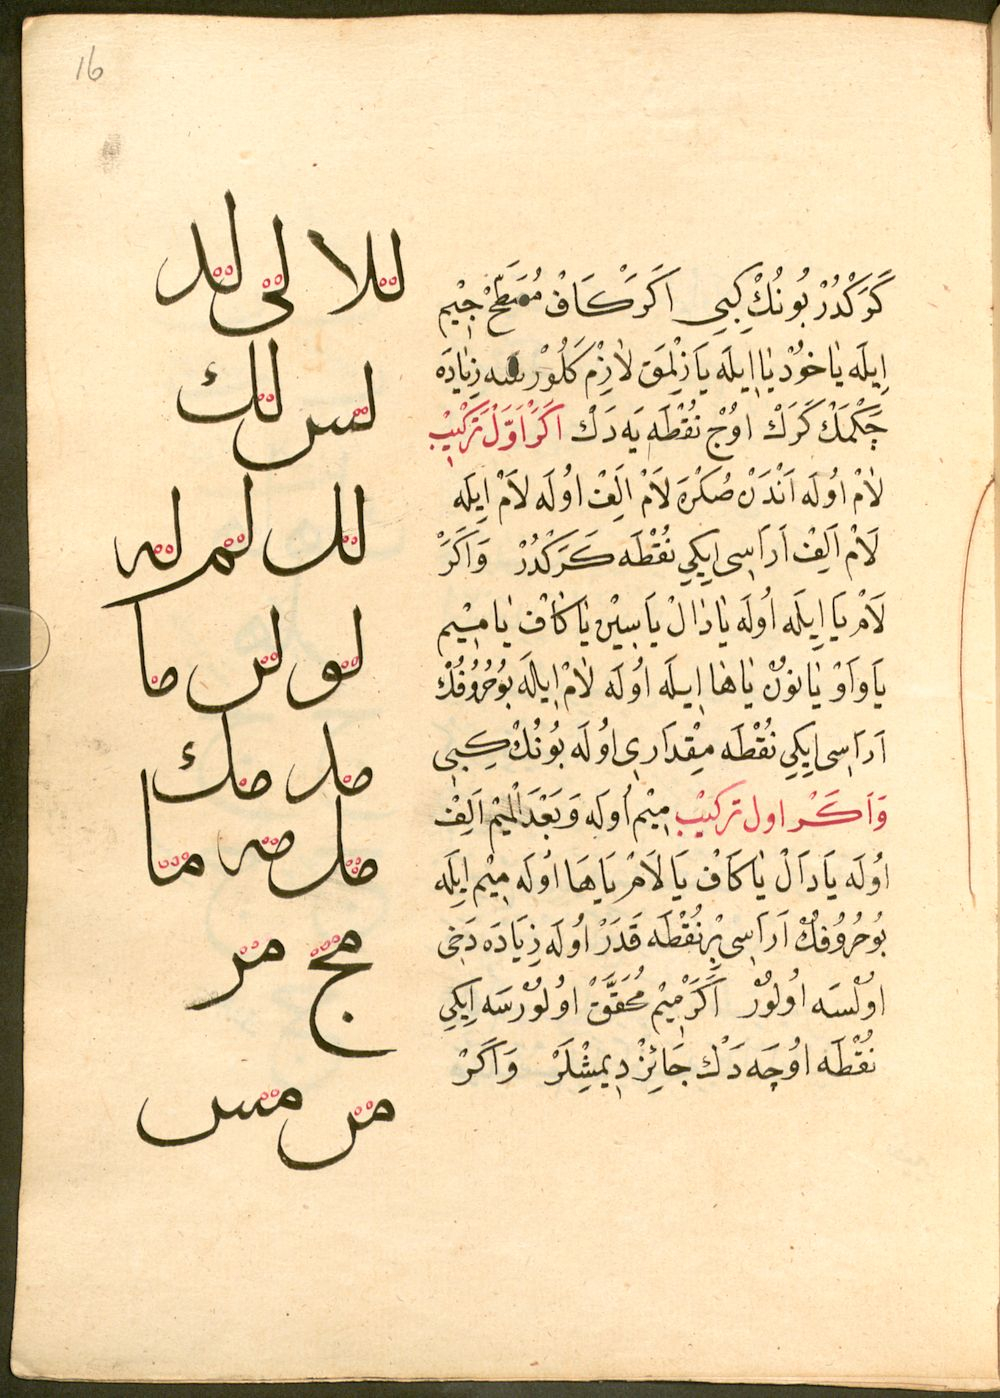 16
كَرَكْدُرْ بُونُكْ كِبِى اَكَرْ كَافْ مُسَطَّحْ جٖيم
اِيلَه يَاخُوذْ يَا اِيلَه يَازِلْمَقْ لَازِمْ كَلُورْسَه زِيَادَه
چَكْمَكْ كَرَكْ اوُچْ نُقْطَه يَه دَكْ اَكَرْ اَوَّلْ تَرْكٖيبْ
لَامْ اوُلَه اَنْدَنْ صُكْرَه لَامْ اَلِفْ اوُلَه لَامْ اِيلَه
لَامْ اَلِفْ اَرَاسِى اِيكِى نُقْطَه كَرَكْدُرْ وَاَكَرْ
لَامْ يَا اِيلَه اُولَه يَا دَالْ يَا سِينْ يَا كَافْ يَا مٖيم
يَا وَاوْ يَا نُونْ يَا هَا اِيلَه اُولَه لَامْ اِيلَه بُوحُرُوفُكْ
اَرَاسِى اِيكِى نُقْطَه مِقْدَارِى اُولَه بُونُكْ كِبِى
وَاَكَرْ اول تركٖيبْ مِيْم اُولَه وَبَعْدَ الْمٖيْم اَلِفْ
اُولَه يَا دَالْ يَا كَافْ يَا لَامْ يَا هَا اُولَه مِيْم اِيلَه
بُوحُرُوفُكْ اَرَاسِى بِرْ نُقْطَه قَدَرْ اُولَه زِيَادَه دَخِى
اوُلْسَه اُولُورْ اَكَرْ مِيْم مُحَقَّقْ اوُلُورْسَه اِيكِى
نُقْطَه اوُچَه دَكْ جَائِزْ دِيمِشْلَرْ وَاَكَرْ
للا لى لد
لس لك
لل لم له
لو لں ما
مد مك
مل مه ما
مج مر
مں مس